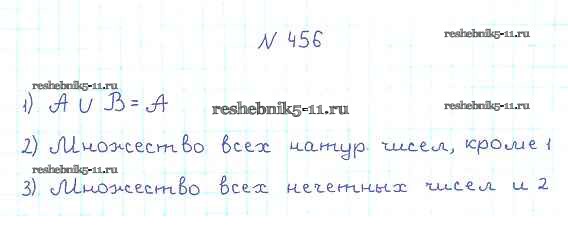 № 456
reshebnik5-11.ru
reshebnik5-11.ru
1) A ∪ B = A
reshebnik5-11.ru
reshebnik5-11.ru
2) Множество всех натур чисел, кроме 1
reshebnik5-11.ru
3) Множество всех нечетных чисел и 2